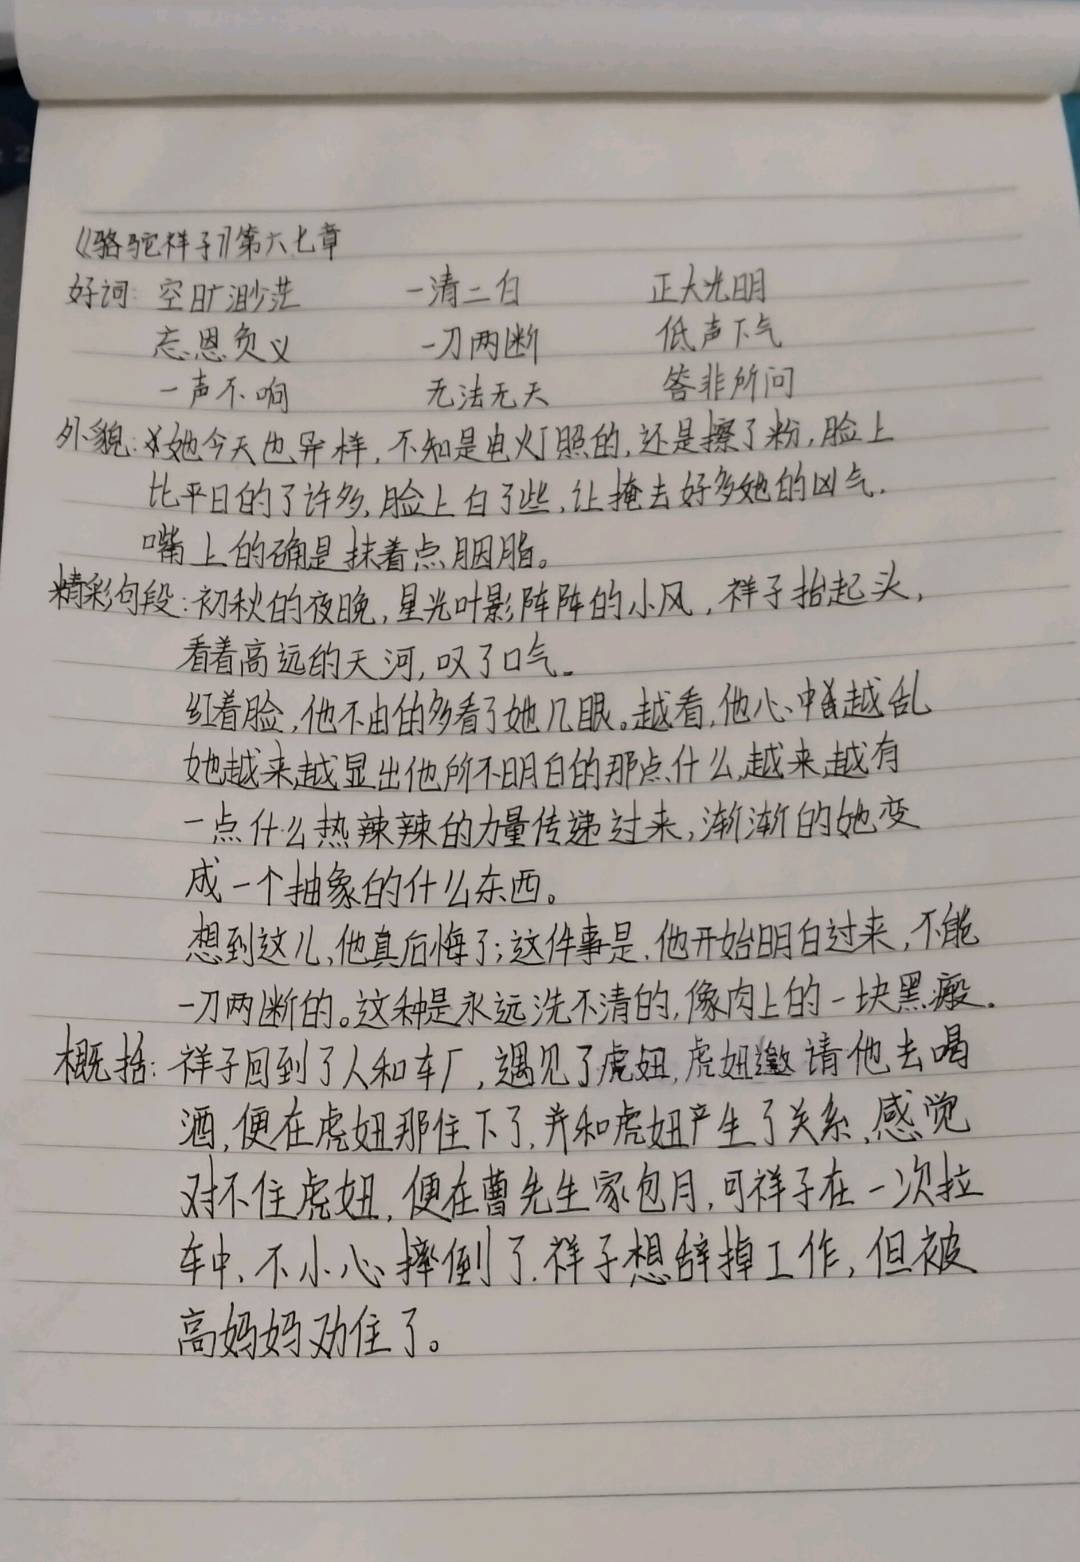 《骆驼祥子》第六七章
好词: 空旷渺茫 一清二白 正大光明
忘恩负义 一刀两断 低声下气
一声不响 无法无天 答非所问
外貌:她今天也异样,不知是电灯照的,还是擦了粉,脸上
比平日的了许多,脸上白了些,让掩去好多她的凶气.
嘴上的确是抹着点胭脂。
精彩句段:初秋的夜晚,星光叶影阵阵的小风,祥子抬起头,
看着高远的天河,叹了口气。
红着脸,他不由的多看了她几眼。越看,他心中越乱
她越来越显出他所不明白的那点什么,越来越有
一点什么热辣辣的力量传递过来,渐渐的她变
成一个抽象的什么东西。
想到这儿,他真后悔了;这件事是,他开始明白过来,不能
一刀两断的。这种是永远洗不清的,像肉上的一块黑瘢.
概括: 祥子回到了人和车厂,遇见了虎妞,虎妞邀请他去喝
酒,便在虎妞那住下了,并和虎妞产生了关系,感觉
对不住虎妞,便在曹先生家包月,可祥子在一次拉
车中,不小心摔倒了.祥子想辞掉工作,但被
高妈妈劝住了。